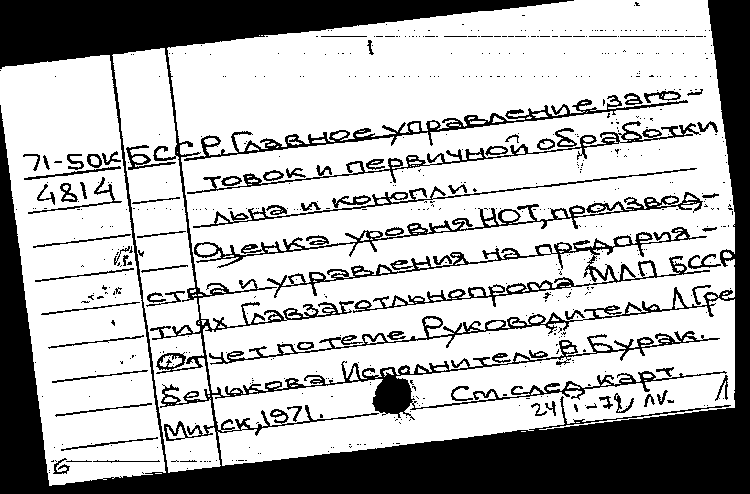 71-50К БССР. Главное управление заго-
4814 товок и первичной обработки
льна и конопли.
Оценка уровня НОТ, производ-
ства и управления на предприя-
тиях Главзаготльнопрома МЛП БССР
Отчет по теме. Руководитель Л. Гре
бенькова. Исполнитель В. Бурак.
Минск, 1971. См. след. карт.
24/I-72 лк. 1
Б